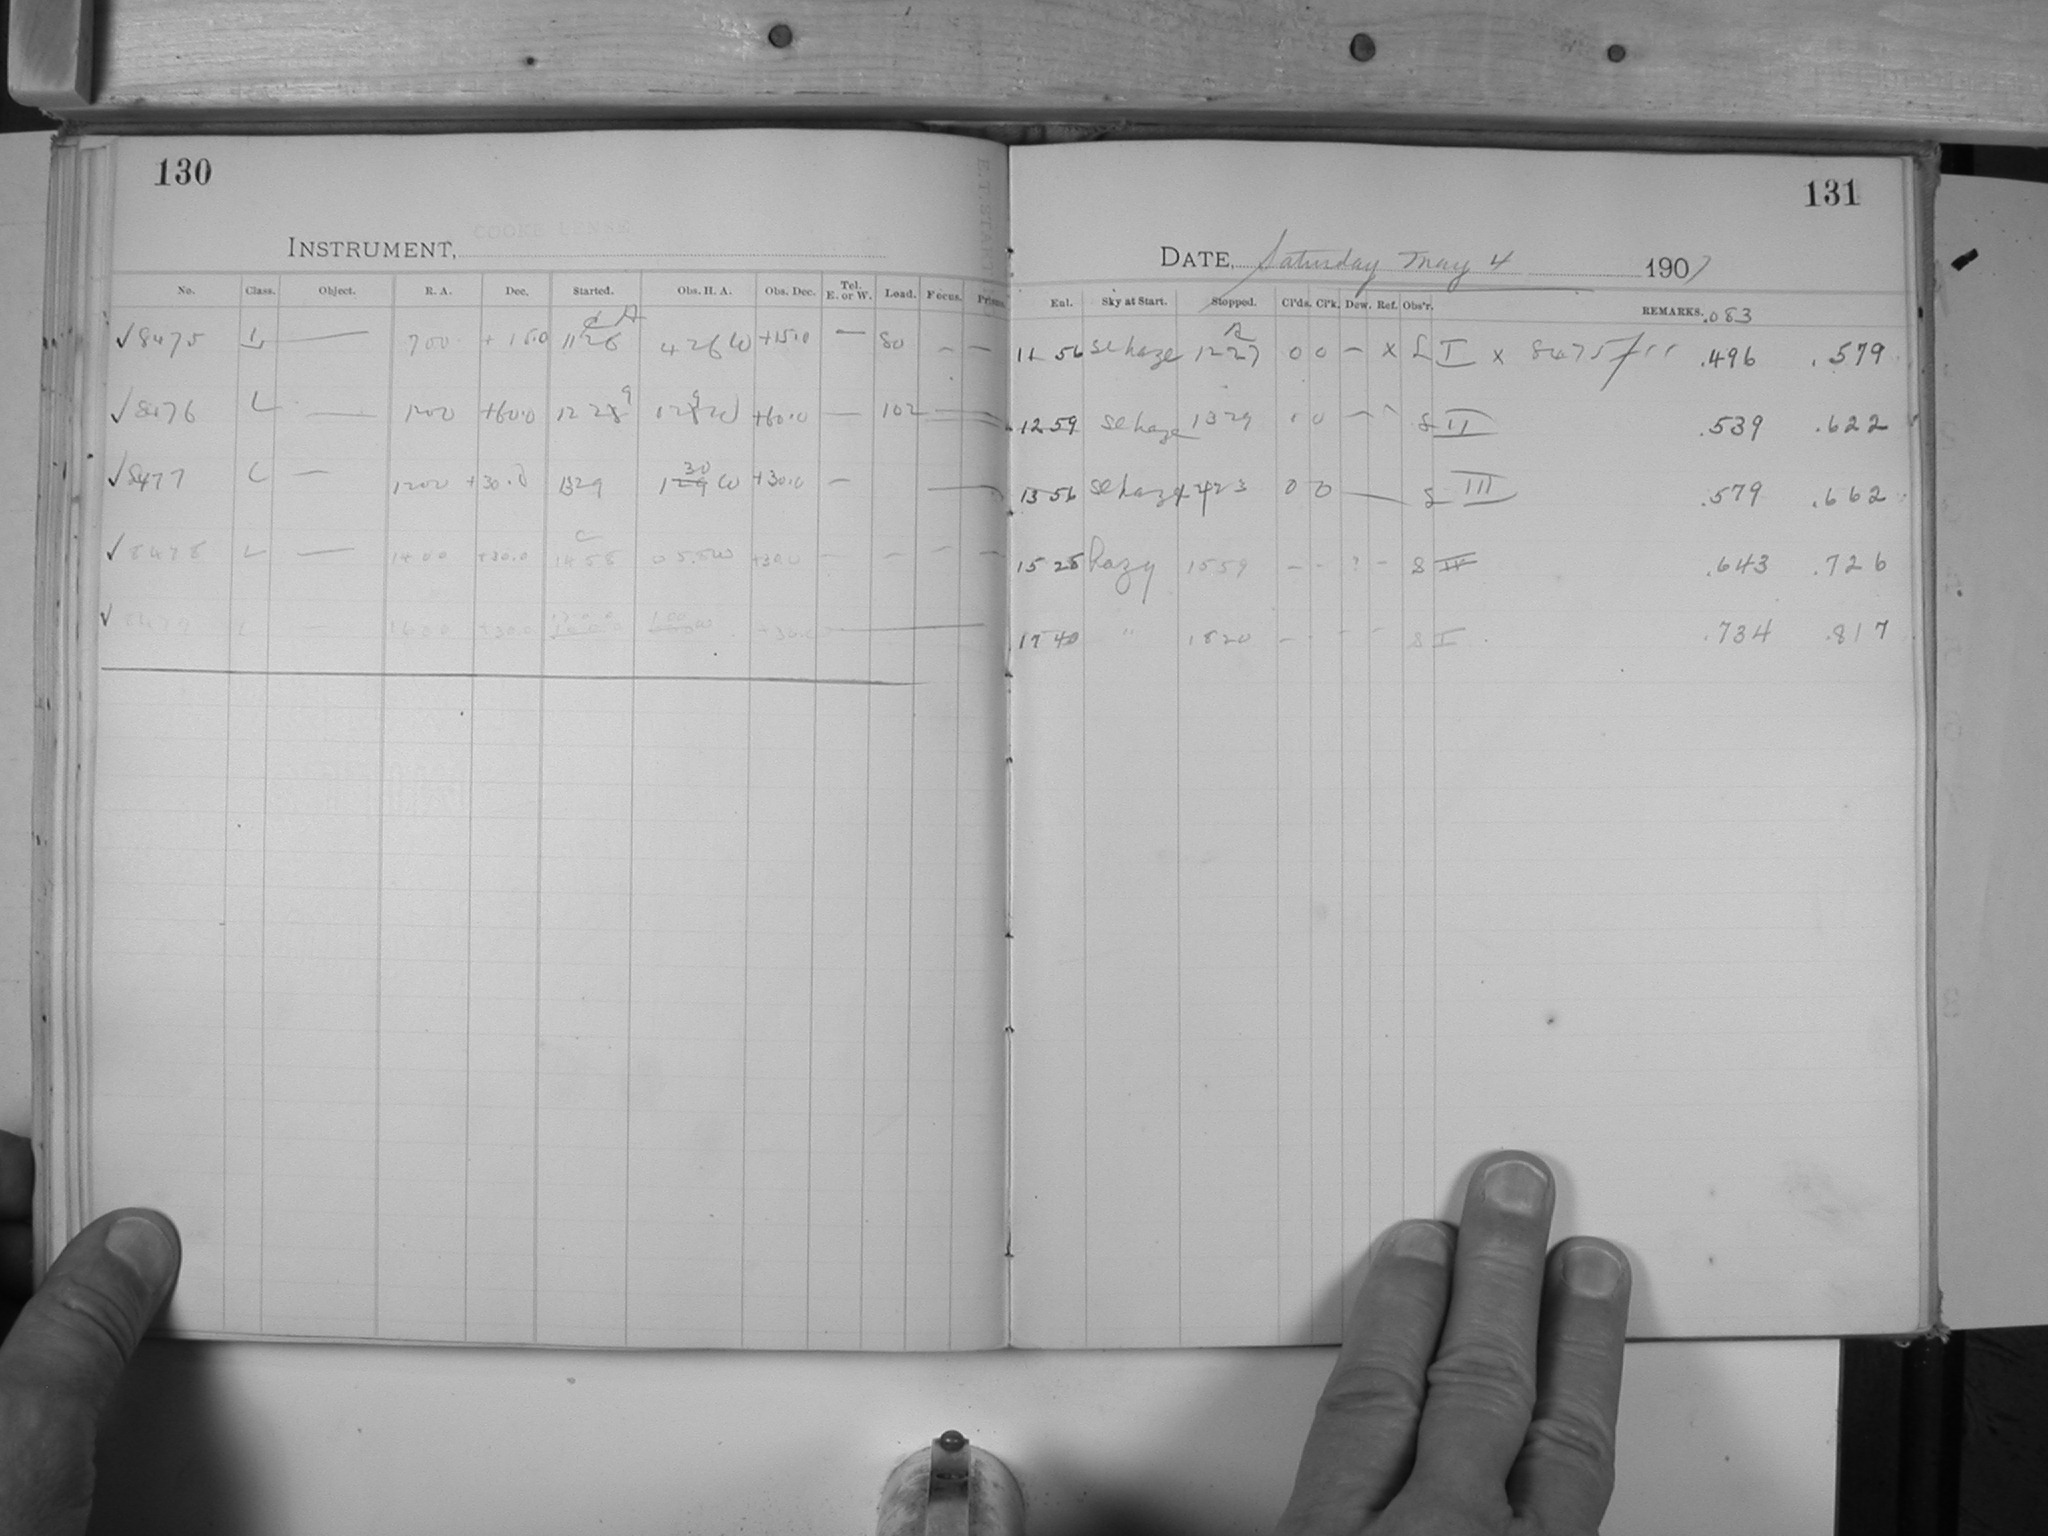 130
INSTRUMENT,
No. Class. Object. R. A. Dec. Started. Obs. H. A. Obs. Dec. Tel. E. or W. Load. Focus. Prisms
✓8475 L — 700 + 15.0 1126 4 26 W +15.0 — 80 — —
✓8476 L — 1200 +60.0 12 28 9 0 28 9 W +60.0 — 102
✓8477 L — 1200 +30.0 1329 1 29 30 W +30.0 —
✓8478 L — 1400 +30.0 1458 0 58 W +30.0 — — — —
✓8479 L — 1600 +30.0
131
DATE, Saturday May 4 1907
Enl. Sky at Start. Stopped. Cl'ds. Cl'k. Dew. Ref. Obs'r. REMARKS. .083
11 56 Se haze 1227 0 0 — x L I x 8475 .496 .579
12 59 Se haze 1329 0 0 — S II .539 .622
13 56 Se haze 1423 0 0 — S III .579 .662
15 28 hazy 1559 — — ? — S IV .643 .726
17 40 " 1820 — — — S I .734 .817